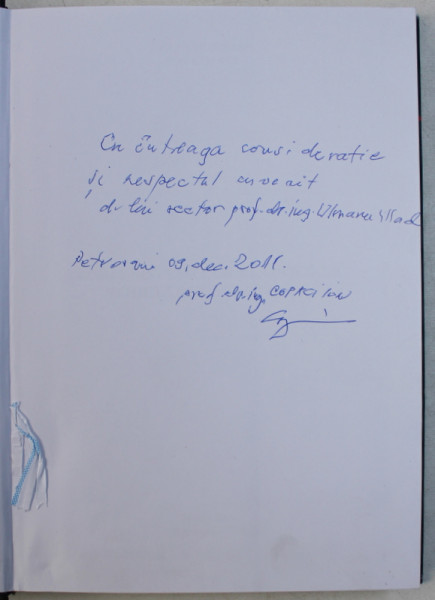 Cu întreaga consideratie
și respectul cuvenit
d-lui rector prof.dr.ing. Ulmanu Vlad
Petroșani 09.dec.2011.
prof.dr.ing. COPACI Ion